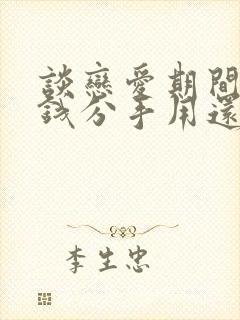 談戀愛期間
錢分手用還
李生忠